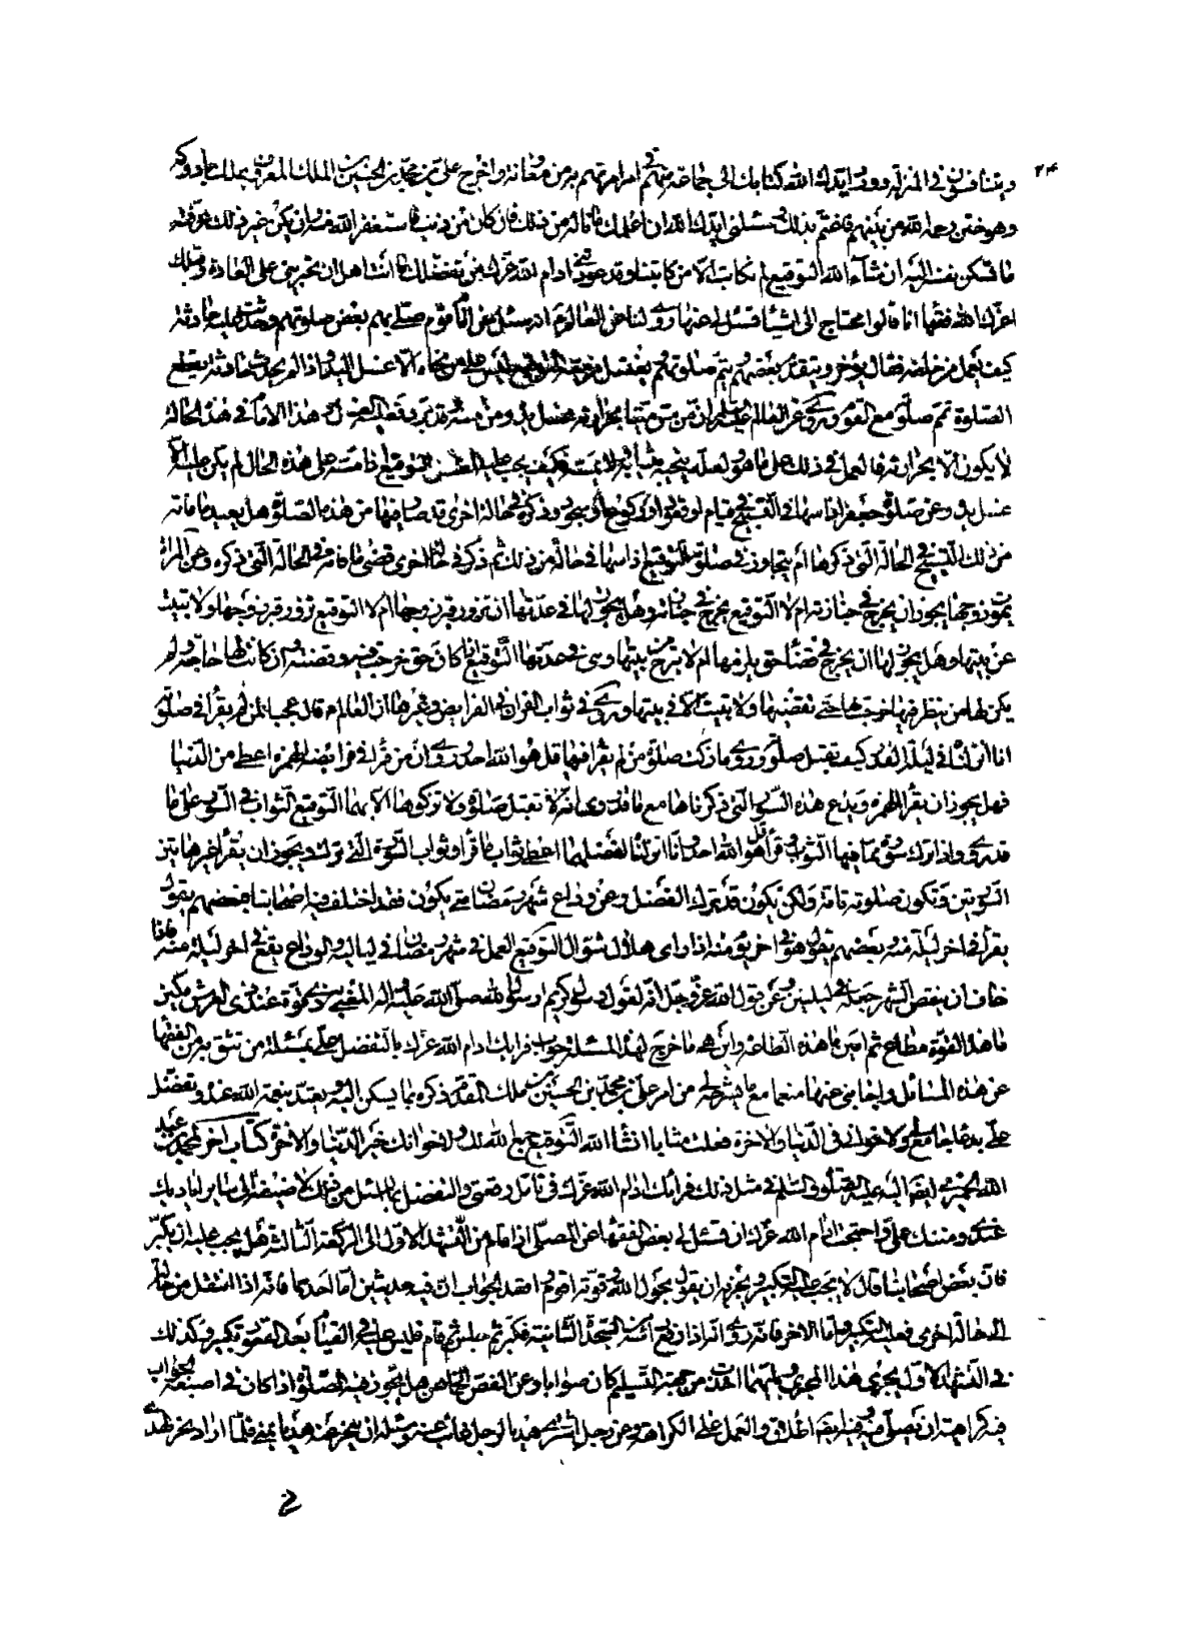 ويتنافسون في المنزلة وورد ايدك الله كتابك الى جماعة منهم في امر امرتهم به من معاونة واخرج علي بن محمد بن الحسين بن الملك المعروف بملك بادوكه
وهو ختن رحمه الله من بينهم فاغتم بذلك وسئلني ايدك الله ان اعلمك ما ناله من ذلك فان كان من ذنب فاستغفر الله منه وان يكن غير ذلك عرفته
ما تسكن نفسه اليه ان شاء الله التوقيع لم نكاتب الا من كاتبنا وقد عودتني ادام الله عزك من تفضلك ما انت اهل ان تجريني على العادة وقبلك
اعزك الله فقهاء انا قالوا محتاج الى اشياء تسئل لي عنها روي لنا عن العالم انه سئل عن امام قوم صلى بهم بعض صلوتهم وحدثت عليه حادثة
كيف يعمل من خلفه فقال يؤخر ويتقدم بعضهم ويتم صلوتهم ويغتسل من مسه التوقيع ليس على من نحاه الا غسل اليد واذا لم يحدث حادثة يقطع
الصلوة تمم صلوته مع القوم وروي عن العالم ان من مس ميتا بحرارته غسل يده ومن مسه وقد برد فعليه الغسل وهذا الامام في هذه الحالة
لا يكون الا بحرارته فالعمل في ذلك على ما هو ولعله ينحيه بثيابه ولا يمسه فكيف يجب عليه الغسل التوقيع اذا مسه على هذه الحال لم يكن عليه الا
غسل يده وعن صلوة جعفر اذا سها في التسبيح في قيام او قعود او ركوع او سجود وذكره في حالة اخرى قد صار فيها من هذه الصلوة هل يعيد ما فاته
من ذلك التسبيح في الحالة التي ذكرها ام يتجاوز في صلوته التوقيع اذا سها في حالة من ذلك ثم ذكر في حالة اخرى قضى ما فاته في الحالة التي ذكره وعن المراة
يموت زوجها يجوز ان يخرج في جنازته ام لا التوقيع يخرج في جنازته وهل يجوز لها في عدتها ان تزور قبر زوجها ام لا التوقيع تزور قبر زوجها ولا تبيت
عن بيتها وهل يجوز لها ان يخرج في قضاء حق يلزمها ام لا تبرح من بيتها وهي في عدتها التوقيع اذا كان حق خرجت فيه وتقضيه وان كانت لها حاجة ولم
يكن لها من ينظر فيها خرجت لها حتى تقضيها ولا تبيت الا في بيتها وروي في ثواب القران في الفرايض وغيرها ان العالم قال عجبا لمن لم يقرأ في صلوته
انا انزلناه في ليلة القدر كيف تقبل صلوته وروي ما زكت صلوة من لم يقرأ فيها قل هو الله احد وروي ان من قرأ في فرايضه الهمزة اعطي من الدنيا
فهل يجوز ان يقرأ الهمزة ويدع هذه السور التي ذكرناها مع ما قد روي انه لا تقبل صلوة ولا تزكوها الا بهما التوقيع الثواب في السور على ما
قد روي واذا ترك سورة مما فيها الثواب وقرأ قل هو الله احد وانا انزلناه لفضلهما اعطي ثواب ما قرأ وثواب السورة التي ترك ويجوز ان يقرأ غير هاتين
السورتين وتكون صلوته تامة ولكن يكون قد ترك الفضل وعن وداع شهر رمضان متى يكون فقد اختلف فيه اصحابنا فبعضهم يقول
يقرأ في اخر ليلة منه وبعضهم يقول هو في اخر يوم منه اذا راى هلال شوال التوقيع العمل في شهر رمضان في لياليه والوداع يقع في اخر ليلة منه فاذا
خاف ان ينقص الشهر جعله في ليلتين وعن قول الله عز وجل انه لقول رسول كريم ارسول الله صلى الله عليه واله المعني به ذي قوة عند ذي العرش مكين
ما هذه القوة مطاع ثم امين ما هذه الطاعة واين هي ما خرج لهذا المسئلة جواب فرايك ادام الله عزك بالتفضل علي بمسئلة من تثق به من الفقهاء
عن هذه المسائل واجابتي عنها منعما مع ما يشرحه لي من امر علي بن محمد بن الحسين بن ملك المقدم ذكره بما يسكن اليه ويعتد بنعمة الله عنده وتفضل
علي بدعاء جامع لي ولاخواني في الدنيا والاخرة فعلت مثابا انشاء الله التوقيع جمع الله لك ولاخوانك خير الدنيا والاخرة كتاب اخر لمحمد بن عبد
الله الحميري ايضا اليه عليه الصلوة والسلم في مثل ذلك فرأيك ادام الله عزك في تامل رقعتي والتفضل بما يسهل من ذلك لاضيفه الى سائر اياديك
عندي ومننك علي واحتجت ادام الله عزك ان تسئل لي بعض الفقهاء عن المصلي اذا قام من التشهد الاول الى الركعة الثالثة هل يجب عليه ان يكبر
فان بعض اصحابنا قال لا يجب عليه التكبير ويجزيه ان يقول بحول الله وقوته اقوم واقعد الجواب ان فيه حديثين اما احدهما فانه اذا انتقل من حالة
الى حالة اخرى فعليه التكبير واما الاخر فانه روي انه اذا رفع رأسه من السجدة الثانية فكبر ثم جلس ثم قام فليس عليه في القيام بعد القعود تكبير وكذلك
في التشهد الاول يجري هذا المجرى وبايهما اخذت من جهة التسليم كان صوابا وعن الفص الخماهن هل يجوز فيه الصلوة اذا كان في اصبعه الجواب
فيه كراهية ان يصلي فيه وفيه ايضا اطلاق والعمل على الكراهة وعن رجل اشترى هديا لرجل غائب عنه وسئله ان ينحر عنه هديا بمنى فلما اراد نحر هديه